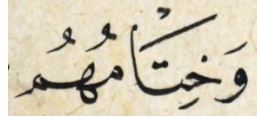 وَخِتَامُهُمُ